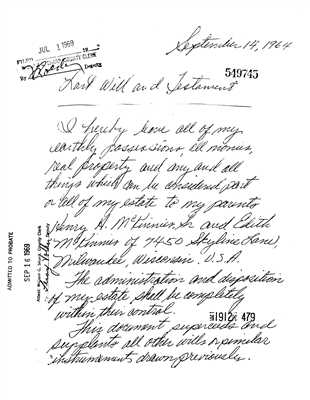 September 14, 1964
JUL 1 1969
FILED
COUNTY CLERK
By
Deputy
549745
Last Will and Testament
I hereby leave all of my
earthly possessions all monies,
real property and any and all
things which can be considered part
or all of my estate to my parents
Henry H. McKinnies, Sr and Edith
McKinnies of 7450 Skyline Lane,
Milwaukee, Wisconsin. U.S.A.
The administration and disposition
of my estate shall be completely
within their control.
1912 479
This document supercedes and
supplants all other wills or similar
instruments drawn previously.
ADMITTED TO PROBATE
SEP 16 1969
Attest: William G. Sharp, County Clerk